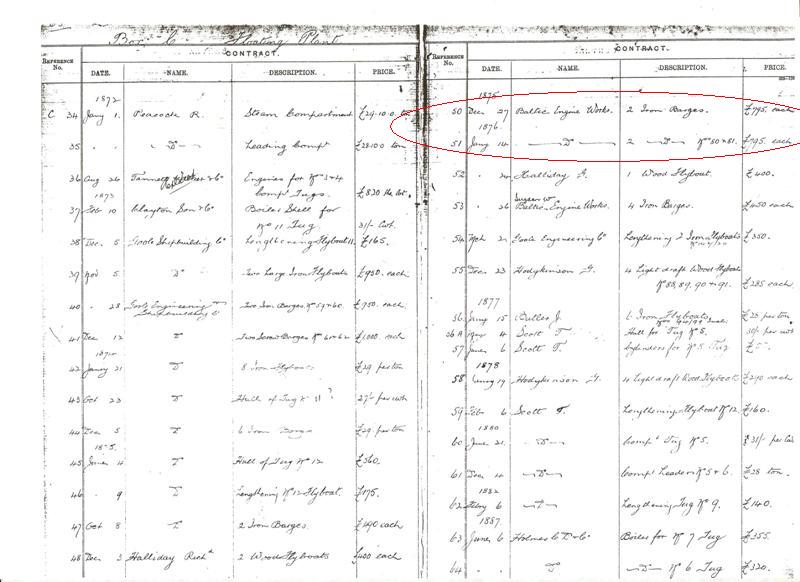 Box C Floating Plant
CONTRACT.
REFERENCE No. DATE. NAME. DESCRIPTION. PRICE.
1872
C 34 Jany 1. Peacock R. Steam Compartment £29.10.0 ton
35 " —D°— Leading Compt £28.10.0 ton
36 Aug 24 Engines for No 3 & 4
Compt Tugs. £820 the lot.
1873
37 Feb 10 Clayton Son & Co Boiler Shell for
No 11 Tug 31/- Cwt.
38 Dec. 5 Goole Shipbuilding Co Lengthening Flyboat 11. £165.
39 Nov 5 D° Two Large Iron Flyboats £950. each
40 . 28 Goole Engineering &
Shipbuilding Co Two Iron Barges No 59 & 60. £750. each
41 Dec 12 D° Two Screw Barges No 61 & 62 £1,000. each
1874
42 Jany 21 D° 8 Iron Flyboats £29 per ton
43 Oct 23 D° Hull of Tug No 11? 27/- per cwt
44 Dec 5 D° 6 Iron Barges £29. per ton
1875.
45 June 4 D° Hull of Tug No 12 £560.
46 . 9 D° Lengthening No 12 Flyboat. £175.
47 Oct 8 D° 2 Iron Barges. £490 each
48 Dec 3 Halliday Richd 2 Wood Flyboats £400 each
CONTRACT.
REFERENCE No. DATE. NAME. DESCRIPTION. PRICE.
1875
50 Dec 27 Baltic Engine Works. 2 Iron Barges. £795. each
1876.
51 Jany 14 —D°— 2 —D°— Nos 80 & 81. £795. each
52 . 24 Halliday G. 1 Wood Flyboat. £400.
53 . 26 Baltic Engine Works. 4 Iron Barges. £450 each
54 Mch 21 Goole Engineering Co Lengthening 2 Iron Flyboats £350.
55 Dec 23 Hodgkinson G. 4 Light draft Wood Flyboats
No 88, 89, 90 & 91. £285 each
1877
56 Jany 15 Butler J. 6 Iron Flyboats. £25 per ton
56A May 4 Scott T. Hull for Tug No 5. 30/- per cwt
57 June 6 Scott T. for No 5 Tug
1878
58 Hodgkinson G. 4 Light draft Wood Flyboats £290 each
59 Feb 6 Scott T. Lengthening Flyboat No 12. £160.
1880
60 June 21. —D°— Compt Tug No 5. £31/- per Cwt
61 Dec 4 —D°— Compt Leaders No 5 & 6. £28 ton.
1882
62 Feby 6 —D°— Lengthening Tug No 9. £140.
1887.
63 June 6 Holmes Boiler for No 7 Tug £355.
64 . —D°— —D°— No 6 Tug £320.